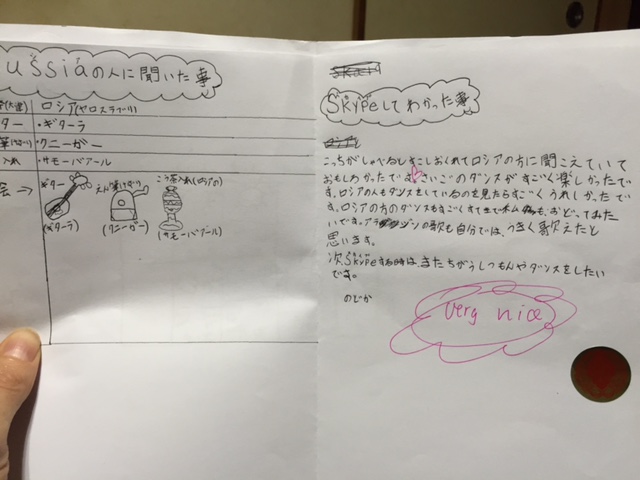 ussiaの人に聞いた事
ロシア(ヤロスラブリ)
ター ・ギターラ
・クニーガー
入れ ・サモーバアール
会→ ギター えんぴつけずり こう茶入れ(ロシアの)
(ギターラ) (クニーガー) (サモーバアール)
Skypeしてわかった事
こっちがしゃべるとすこしおくれてロシアの方に聞こえていて
おもしろかったです さいごのダンスがすごく楽しかったで
す。ロシアの人もダンスをしているのを見たらすごくうれしかったで
す。ロシアの方のダンスもすごくすてきで も、おどってみた
いです。アラ ジンの歌も自分では、うまく歌えたと
思います。
次Skypeする時は、またちがうしつもんやダンスをしたい
です。
のどか
very nice